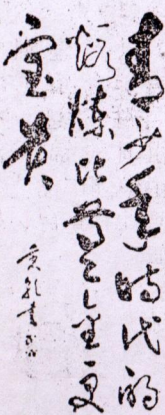 青少年时代的
锻炼比黄金更
宝贵